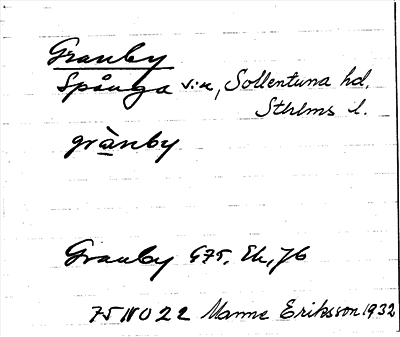 Granby
Spånga sn, Sollentuna hd.
Sthlms l.
grànby
Granby G75, Ek, Jb
75 NO 22 Manne Eriksson 1932